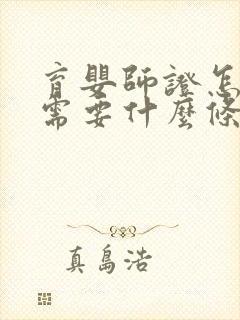 育嬰師證怎
需要什麼條
真島浩